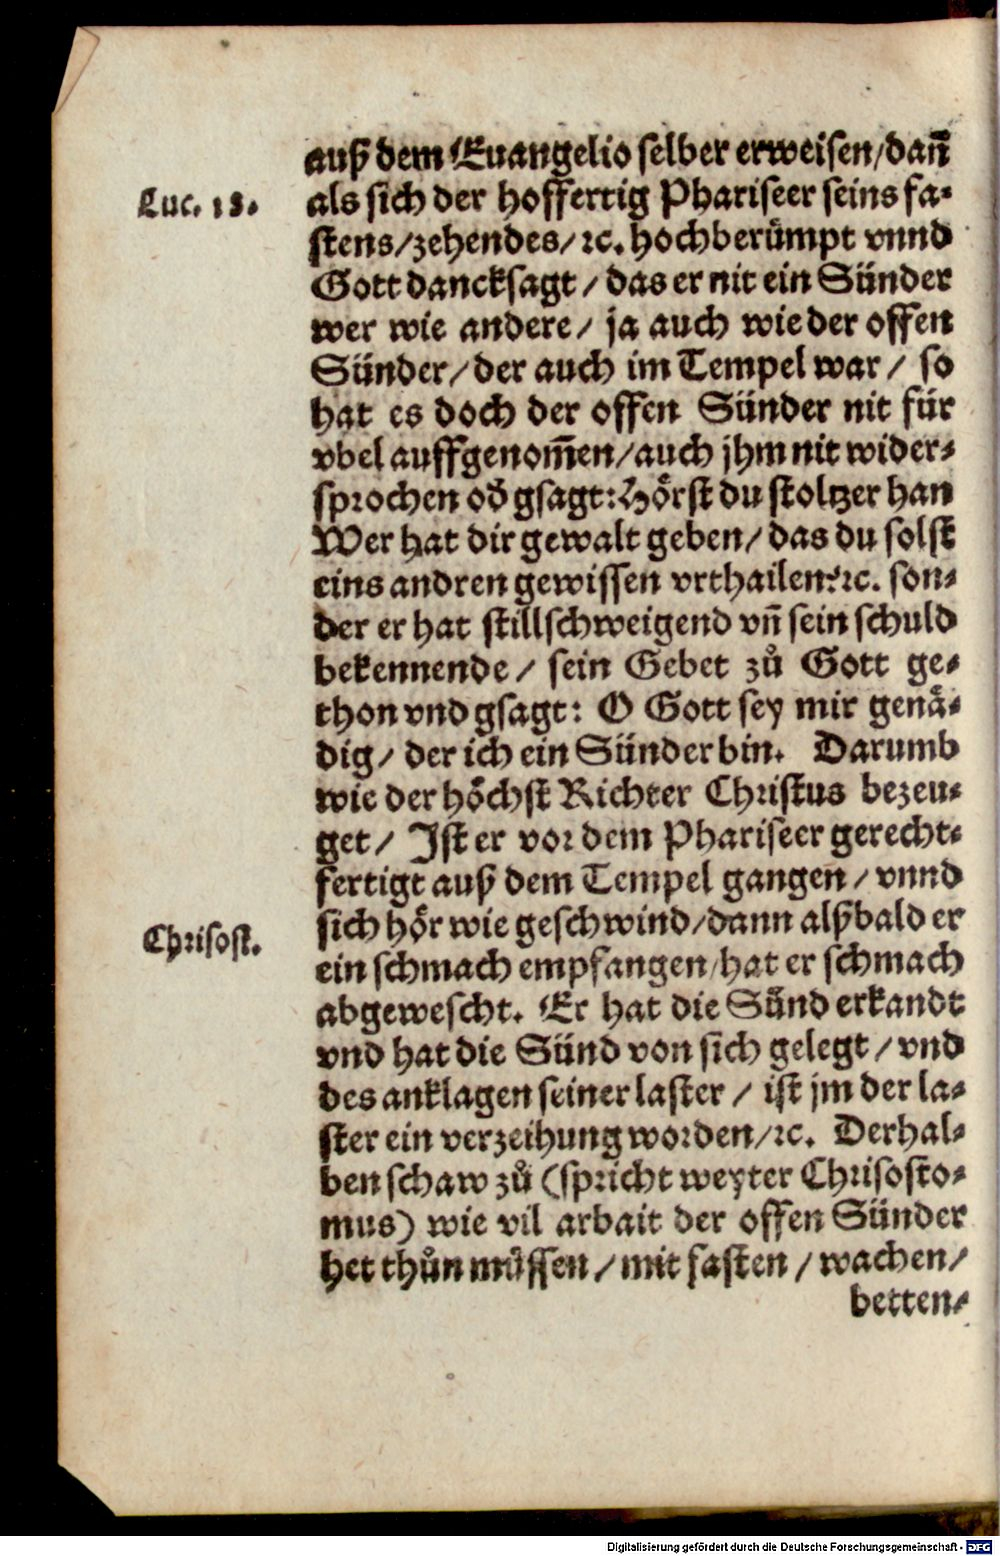 auß dem Euangelio selber erweisen/dañ
Luc. 18.
als sich der hoffertig Phariseer seins fa-
stens/zehendes/ꝛc. hochberümpt vnnd
Gott dancksagt / das er nit ein Sünder
wer wie andere/ ja auch wie der offen
Sünder/der auch im Tempel war / so
hat es doch der offen Sünder nit für
vbel auffgenom̃en/auch jhm nit wider-
sprochen od̕ gsagt: Hörst du stoltzer han
Wer hat dir gewalt geben/ das du solst
eins andren gewissen vrthailen?ꝛc. son-
der er hat stillschweigend vñ sein schuld
bekennende/ sein Gebet zů Gott ge-
thon vnd gsagt: O Gott sey mir genä-
dig/ der ich ein Sünder bin. Darumb
wie der höchst Richter Christus bezeu-
get/ Ist er vor dem Phariseer gerecht-
fertigt auß dem Tempel gangen/ vnnd
sich hör wie geschwind/dann alßbald er
Chrisost.
ein schmach empfangen/hat er schmach
abgewescht. Er hat die Sünd erkandt
vnd hat die Sünd von sich gelegt/ vnd
des anklagen seiner laster/ ist jm der la-
ster ein verzeihung worden/ꝛc. Derhal-
ben schaw zů (spricht weyter Chrisosto-
mus) wie vil arbait der offen Sünder
het thůn müssen/ mit fasten/ wachen/
betten-
Digitalisierung gefördert durch die Deutsche Forschungsgemeinschaft - DFG